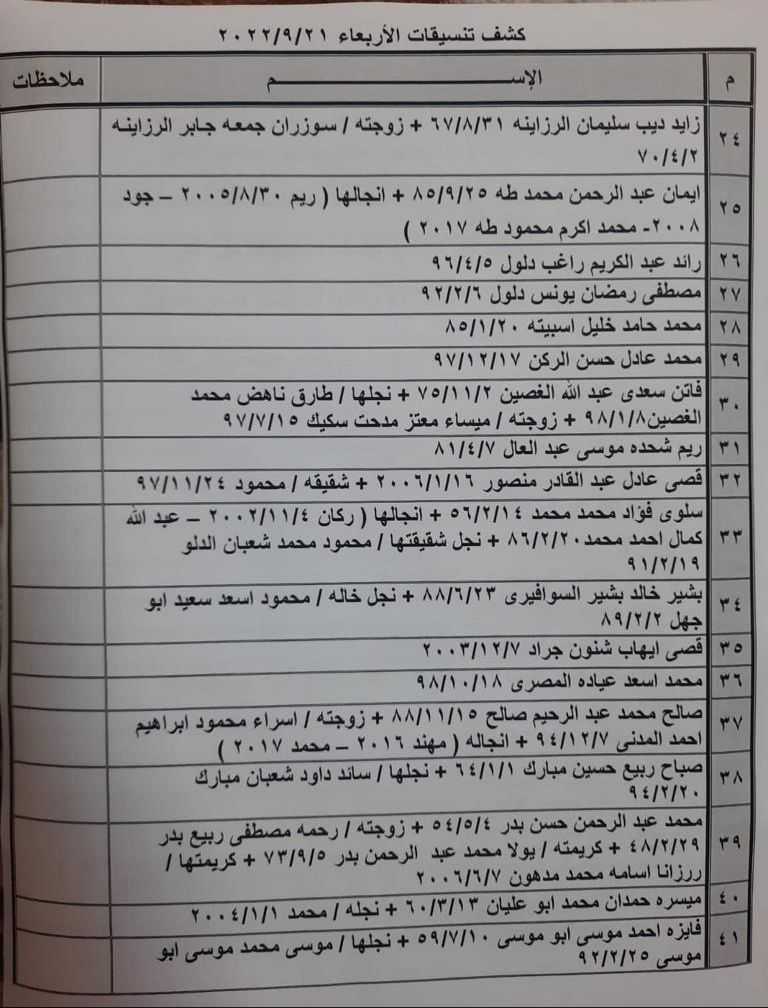 كشف تنسيقات الأربعاء ٢٠٢٢/٩/٢١
م الإســــــــــــــم ملاحظات
٢٤ زايد ديب سليمان الرزاينه ٦٧/٨/٣١ + زوجته / سوزران جمعه جابر الرزاينه
٧٠/٤/٢
٢٥ ايمان عبد الرحمن محمد طه ٨٥/٩/٢٥ + انجالها ( ريم ٢٠٠٥/٨/٣٠ – جود
٢٠٠٨- محمد اكرم محمود طه ٢٠١٧ )
٢٦ رائد عبد الكريم راغب دلول ٩٦/٤/٥
٢٧ مصطفى رمضان يونس دلول ٩٢/٢/٦
٢٨ محمد حامد خليل اسبيته ٨٥/١/٢٠
٢٩ محمد عادل حسن الركن ٩٧/١٢/١٧
٣٠ فاتن سعدى عبد الله الغصين ٧٥/١١/٢ + نجلها / طارق ناهض محمد
الغصين٩٨/١/٨ + زوجته / ميساء معتز مدحت سكيك ٩٧/٧/١٥
٣١ ريم شحده موسى عبد العال ٨١/٤/٧
٣٢ قصى عادل عبد القادر منصور ٢٠٠٦/١/١٦ + شقيقه / محمود ٩٧/١١/٢٤
٣٣ سلوى فؤاد محمد محمد ٥٦/٢/١٤ + انجالها ( ركان ٢٠٠٢/١١/٤ – عبد الله
كمال احمد محمد٨٦/٢/٢٠ + نجل شقيقتها / محمود محمد شعبان الدلو
٩١/٢/١٩
٣٤ بشير خالد بشير السوافيرى ٨٨/٦/٢٣ + نجل خاله / محمود اسعد سعيد ابو
جهل ٨٩/٢/٢
٣٥ قصى ايهاب شنون جراد ٢٠٠٣/١٢/٧
٣٦ محمد اسعد عياده المصرى ٩٨/١٠/١٨
٣٧ صالح محمد عبد الرحيم صالح ٨٨/١١/١٥ + زوجته / اسراء محمود ابراهيم
احمد المدنى ٩٤/١٢/٧ + انجاله ( مهند ٢٠١٦ – محمد ٢٠١٧ )
٣٨ صباح ربيع حسين مبارك ٦٤/١/١ + نجلها / سائد داود شعبان مبارك
٩٤/٢/٢٠
٣٩ محمد عبد الرحمن حسن بدر ٥٤/٥/٤ + زوجته / رحمه مصطفى ربيع بدر
٤٨/٢/٢٩ + كريمته / يولا محمد عبد الرحمن بدر ٧٣/٩/٥ + كريمتها /
ررزانا اسامه محمد مدهون ٢٠٠٦/٦/٧
٤٠ ميسره حمدان محمد ابو عليان ٦٠/٣/١٣ + نجله / محمد ٢٠٠٤/١/١
٤١ فايزه احمد موسى ابو موسى ٥٩/٧/١٠ + نجلها / موسى محمد موسى ابو
موسى ٩٢/٢/٢٥